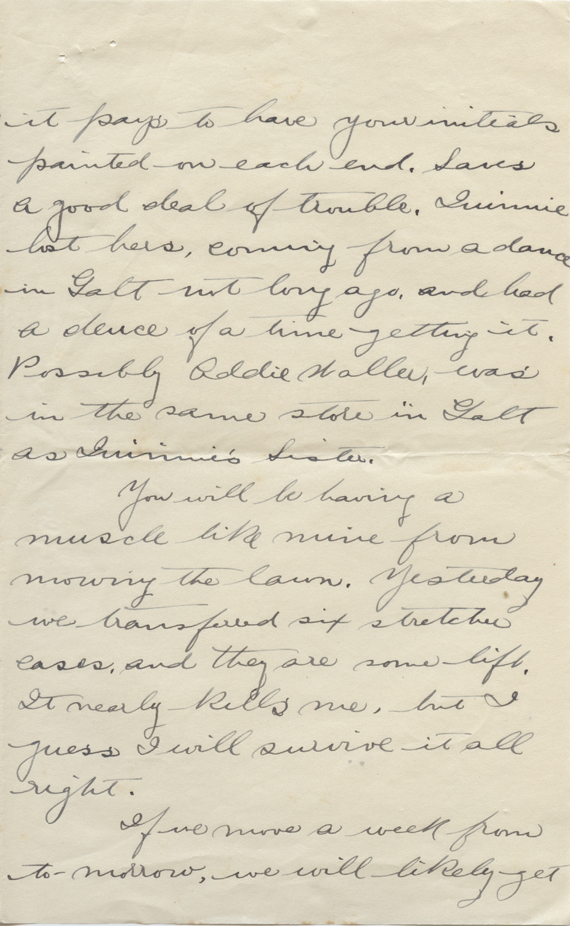 it pays to have your initials
painted on each end. Saves
a good deal of trouble. Quinnie
lost hers, coming from a dance
in Galt not long ago, and had
a deuce of a time getting it.
Possibly Addie Waller, was
in the same store in Galt
as Quinnie's Sister.
You will be having a
muscle like mine from
mowing the lawn. Yesterday
we transferred six stretcher
cases, and they are some lift.
It nearly kills me, but I
guess I will survive it all
right.
If we move a week from
to-morrow, we will likely get